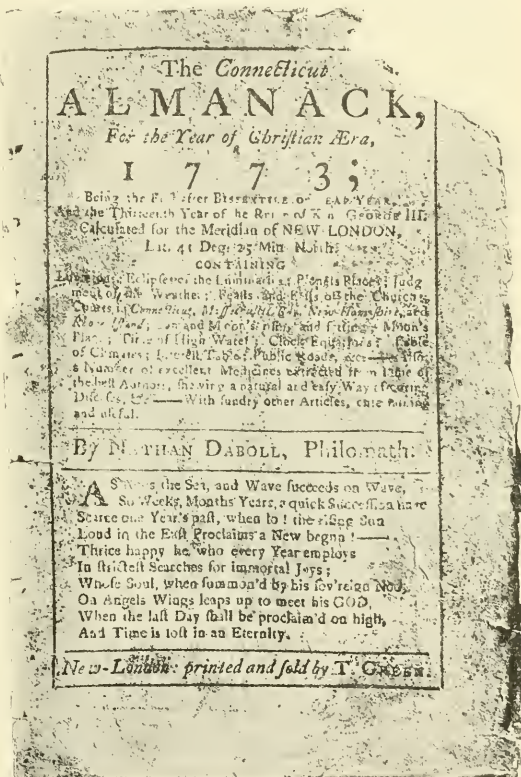 The Connecticut
ALMANACK,
For the Year of Chriſtian Æra,
1773;
Being the after BISSEXTILE or LEAP YEAR,
And the Thirteenth Year of the GEORGE III.
Calculated for the Meridian of NEW LONDON,
Lat. 41 Deg. 25 Min North;
CONTAINING
Eclipſes of the Luminaries; Planets Places; Judg
ment of the Weather; Feaſts and Faſts of the Church;
Courts in Connecticut, New-Hampſhire, and
and Moon's and ſetting; Moon's
Place; Time of High Water; Table
of Climates; Table of Public Roads,
a Number of excellent Medicines extracted from ſome of
the beſt Authors, ſhewing a natural and eaſy Way of curing
Diſeaſes, &c —— With ſundry other Articles, entertaining
and uſeful.
By NATHAN DABOLL, Philomath.
AS the Sea, and Wave ſucceeds on Wave,
So Weeks, Months Years, a quick Succeſſion have
Scarce one Year's paſt, when lo ! the riſing Sun
Loud in the Eaſt Proclaims a New begun !——
Thrice happy he who every Year employs
In ſtricteſt Searches for immortal Joys ;
Whoſe Soul, when ſummon'd by his ſov'reign Nod,
On Angels Wings leaps up to meet his GOD,
When the laſt Day ſhall be proclaim'd on high,
And Time is loſt in an Eternity.
New-London: printed and ſold by T. GREEN.